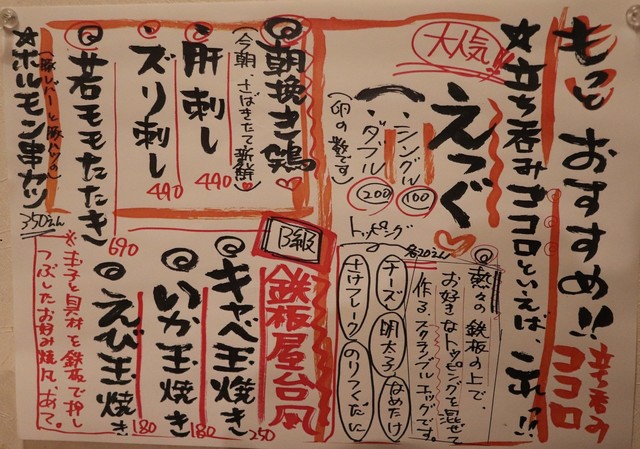 もっとおすすめ!!
立ち呑み
ココロ
★立ち呑みココロといえば、これっ!!
大人気!
えっぐ
シングル 100
ダブル 200
(卵の数です)
◎熱々の鉄板の上で、
お好きなトッピングを混ぜて
作るスクランブルエッグです。
トッピング
各20えん
チーズ
明太子
なめたけ
さけフレーク
のりつくだに
◎朝挽き鶏
(今朝、さばきたて新鮮♡)
◎肝刺し 440
◎ズリ刺し 440
◎若モモたたき 690
★ホルモン串カツ 350えん
(豚レバーと豚ハツの)
B級
鉄板屋台風
◎キャベ玉焼き 250
◎いか玉焼き 180
◎えび玉焼き 180
※玉子と具材を鉄板で押し
つぶしたお好み焼風、あて。